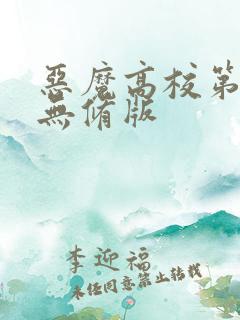 惡魔高校第
無脩版
李迎福
未经同意禁止转载